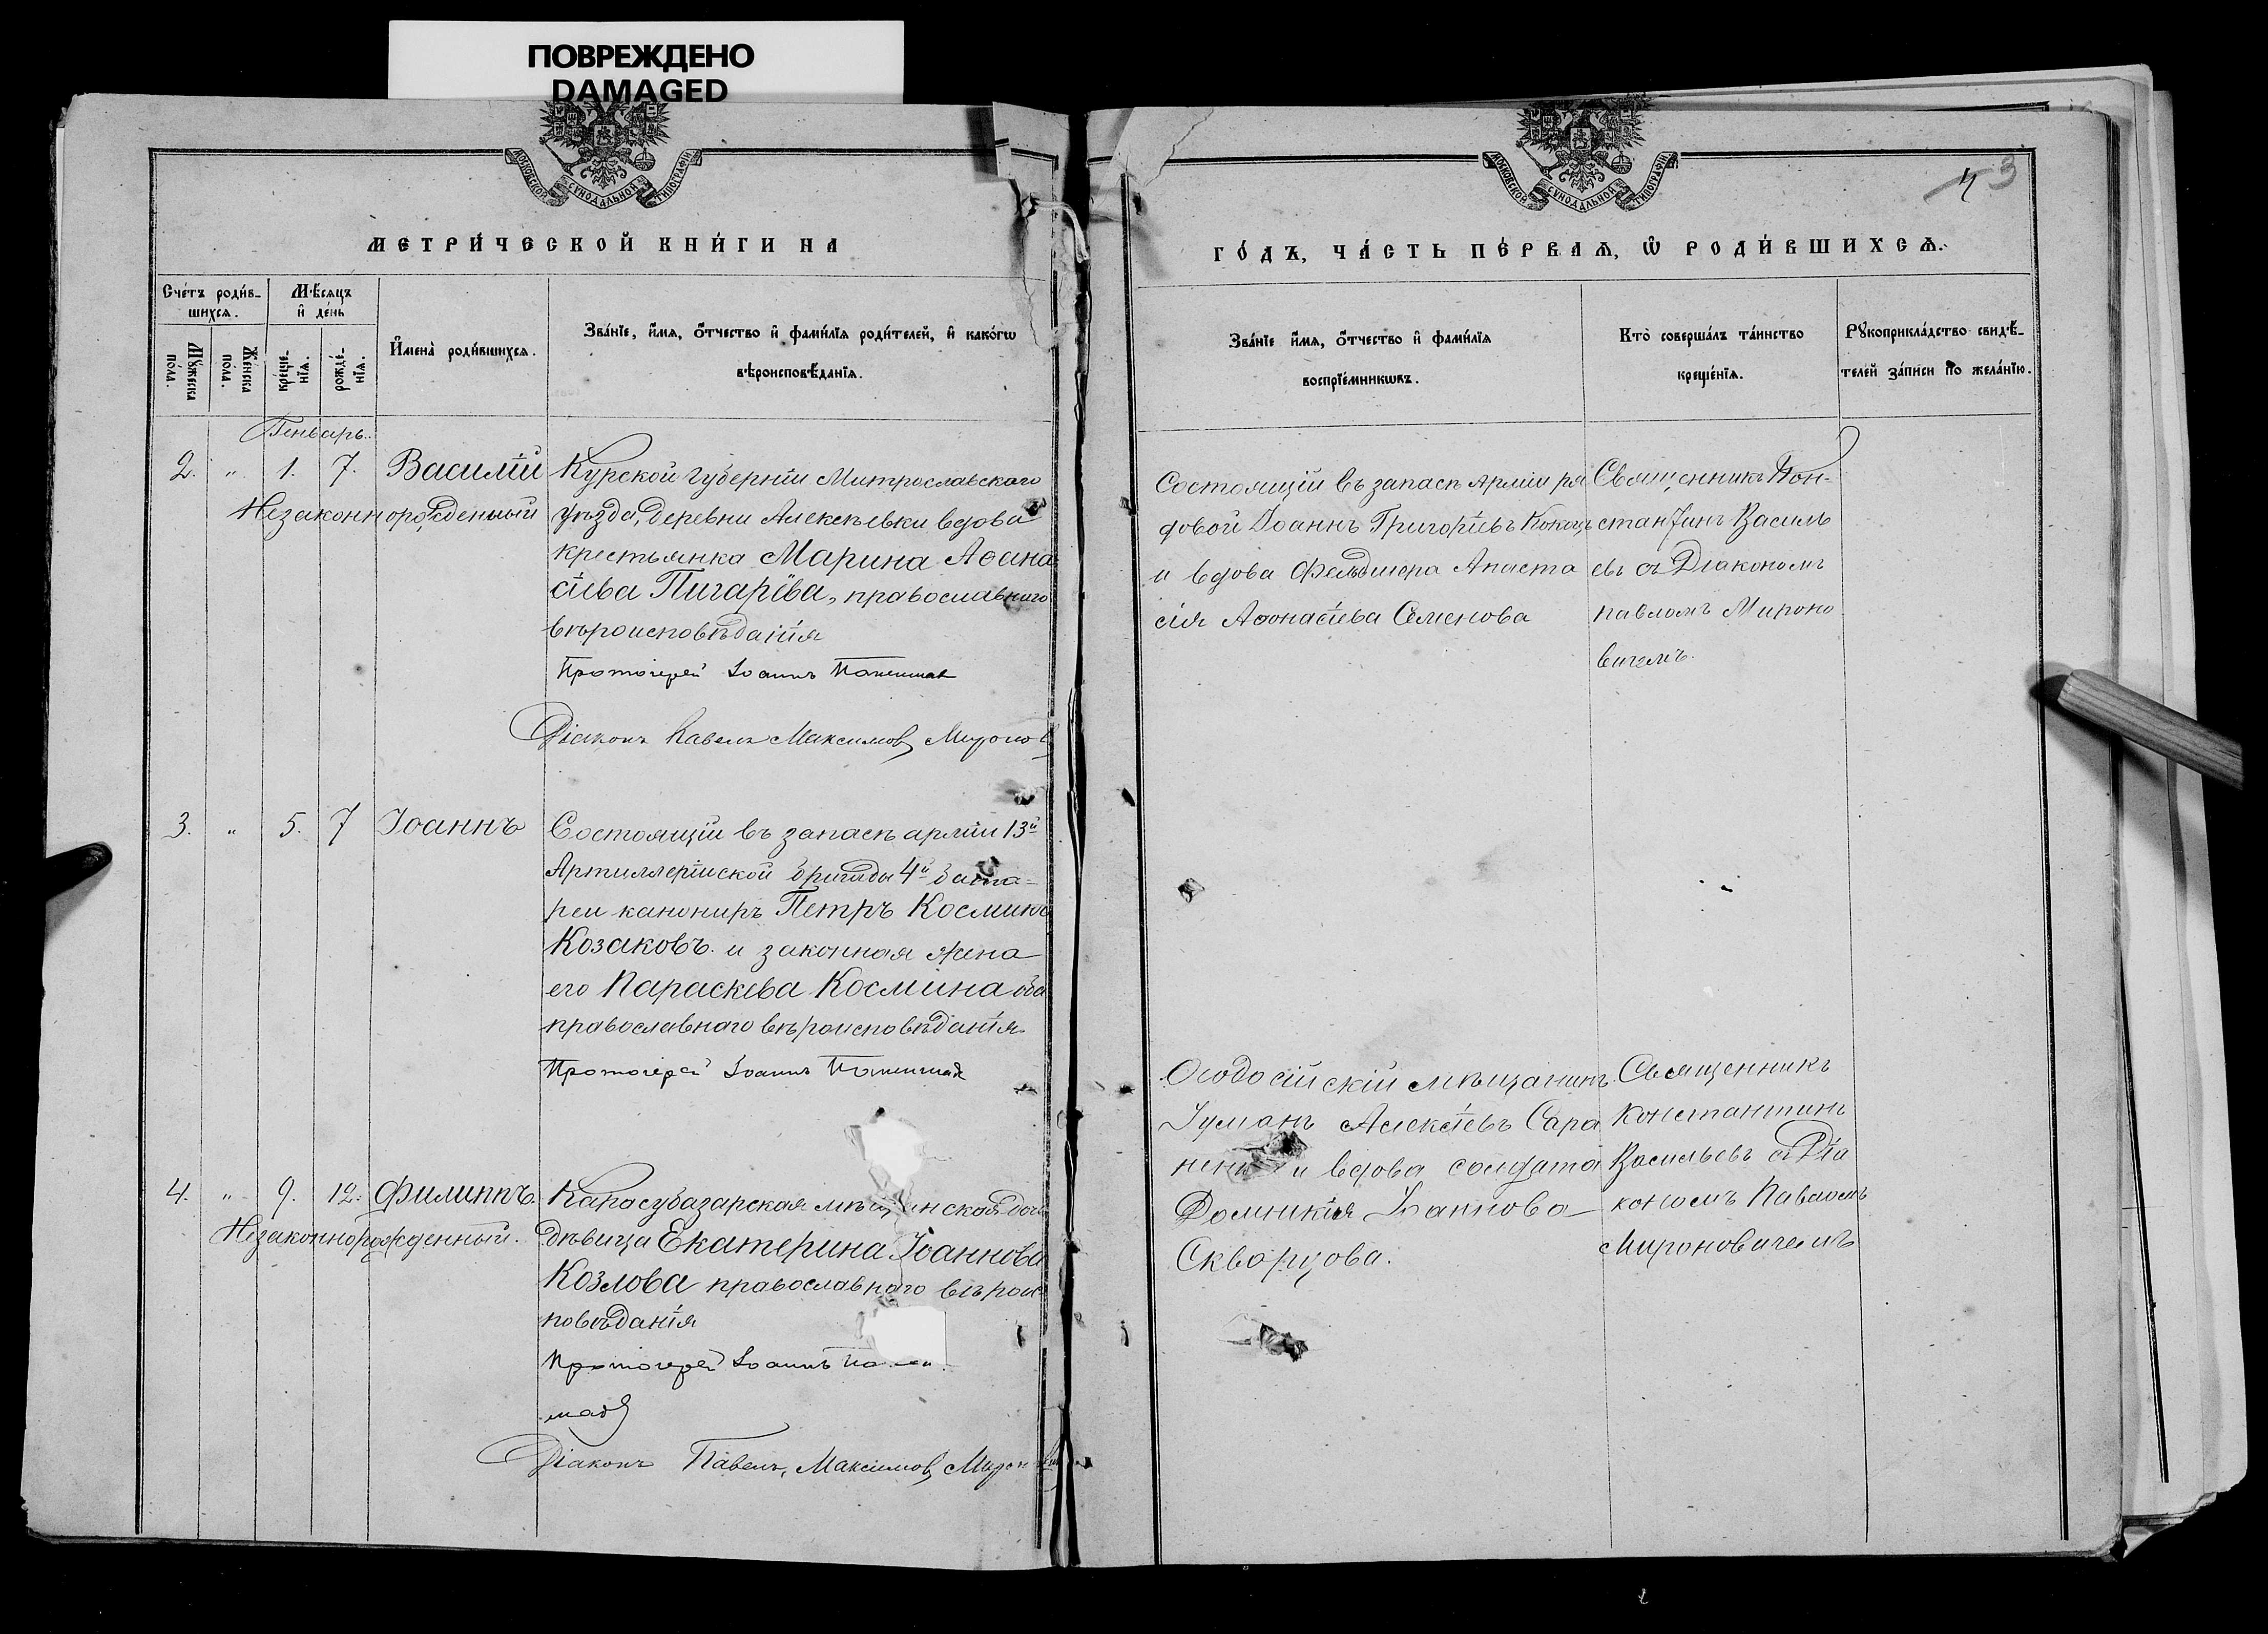 ПОВРЕЖДЕНО
DAMAGED
МОСКОВСКОЙ СѴНОДАЛЬНОЙ ТИПОГРАФІИ
МЕТРИ́ЧЕСКОЙ КНИ́ГИ НА
Сче́тъ роди́в-
шихсѧ.
Мѣ́сѧцъ
и҆ де́нь
Мꙋ́жеска
по́ла.
Же́нска
по́ла.
креще-
нїѧ.
рожде́-
нїѧ.
И҆мена̀ роди́вшихсѧ.
Зва́нїе, и҆́мѧ, ѻ҆́тчество и҆ фами́лїѧ роди́телей, и҆ како́гѡ
вѣроисповѣ́данїѧ.
Генварь.
2. " 1. 7. Василій
Незаконнорожденный
Курской губерніи Митрославскаго
уѣзда, деревни Алексѣевки вдова
крестьянка Марина Аѳана
сіева Пигарёва, православнаго
вѣроисповѣданія
Протоіерей Іоаннъ
Діаконъ Павелъ Максимов
3. " 5. 7 Іоаннъ
Состоящій въ запасѣ арміи 13й
Артиллерійской бригады 4й бата-
реи канониръ Петръ Косминъ
Козаковъ и законная жена
его Параскева Космина оба
православнаго вѣроисповѣданія
Протоіерей Іоаннъ
4. " 9. 12. Филиппъ.
Незаконнорожденный.
Карасубазарская мѣщанская
дѣвица Екатерина Іоаннова
Козлова православнаго вѣроис
повѣданія
Протоіерей Іоаннъ
Діаконъ Павелъ Максимов
МОСКОВСКОЙ СѴНОДАЛЬНОЙ ТИПОГРАФІИ
3
ГО́ДЪ, ЧА́СТЬ ПЕ́РВАѦ, Ѡ҆ РОДИ́ВШИХСѦ.
Зва́нїе и҆́мѧ, ѻ҆́тчество и҆ фами́лїѧ
воспрїе́мникѡвъ.
Кто̀ соверша́лъ та́инство
креще́нїѧ.
Рꙋкоприкла́дство свидѣ́-
телей за́писи по жела́нїю.
Состоящій въ запасѣ Арміи ря
довой Іоаннъ Григоріевъ
и вдова фельдшера Анаста
сія Аѳонасіева Семенова
Священникъ Кон-
стантинъ Василь
евъ съ Діакономъ
Павломъ Мироно
вичемъ.
Ѳеодосійскій мѣщанинъ
Алексіевъ Сара
и вдова солдата
Домникія Іоаннова
Скворцова.
Священникъ
Константинъ
Васильевъ съ Діа
кономъ Павломъ
Мироновичемъ